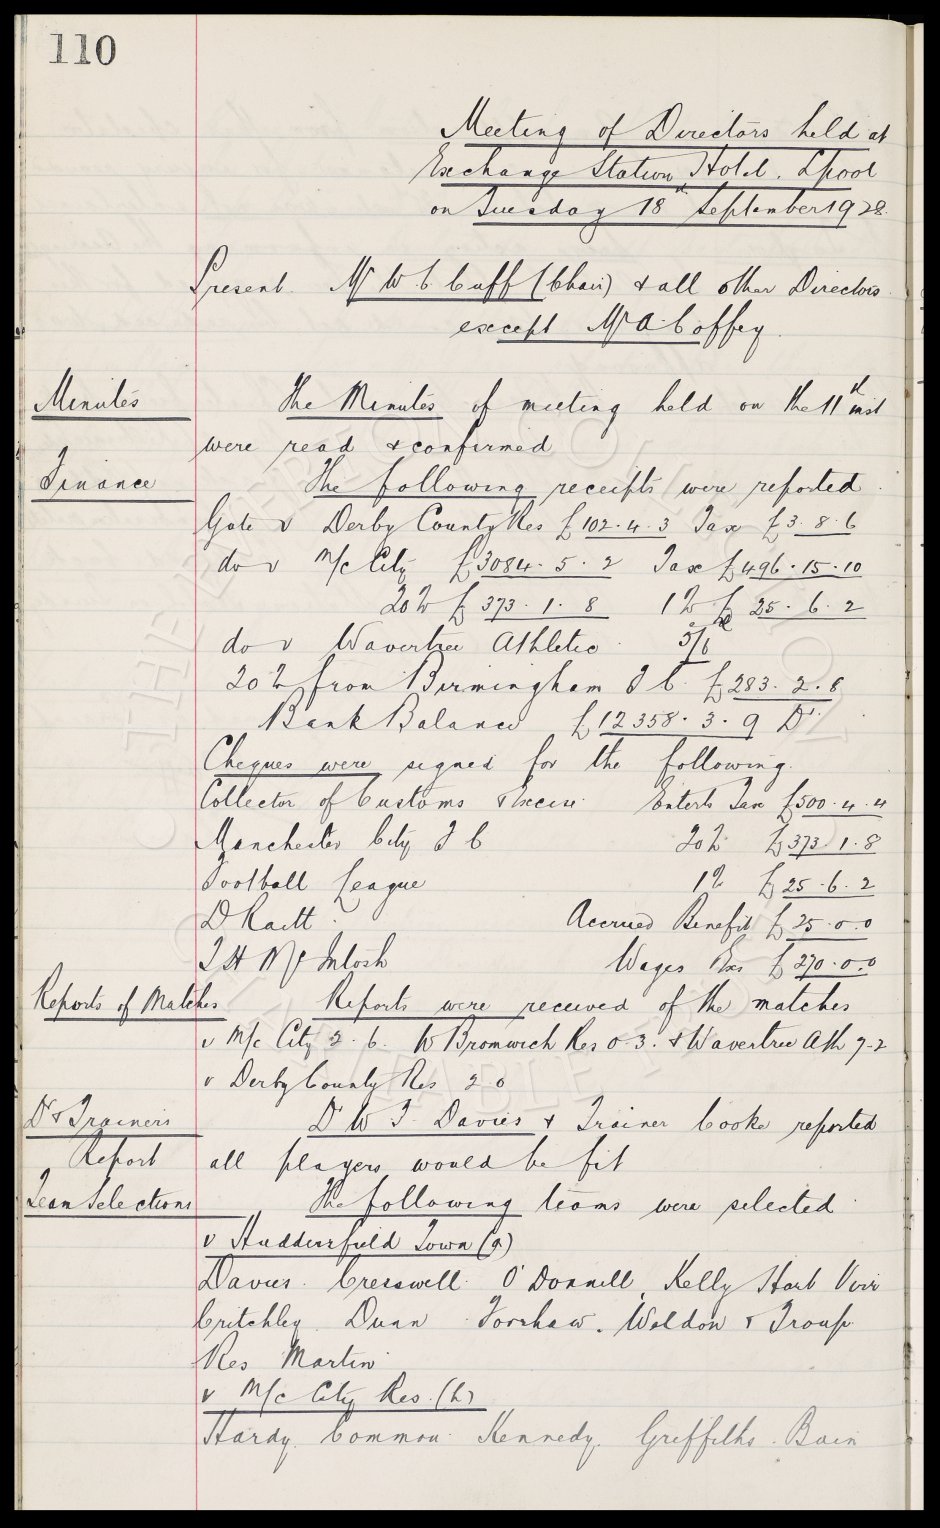 110
Meeting of Directors held at
Exchange Station Hotel. Lpool
on Tuesday 18th September 1928.
Present. Mr W C Cuff (Chair) & all other Directors
except Mr A Coffey.
Minutes The Minutes of meeting held on the 11th inst
were read & confirmed
Finance The following receipts were reported.
Gate v Derby County Res £102.4.3 Tax £3.8.6
do v M/c City £3084.5.2 Tax £496.15.10
20% £373.1.8 1% £25.6.2
do v Wavertree Athletic 5/6d
20% from Birmingham F C. £283.2.8
Bank Balance £12358.3.9 Dr.
Cheques were signed for the following.
Collector of Customs & Excise. Enterts Tax £500.4.4
Manchester City F C 20% £373.1.8
Football League 1% £25.6.2
D Raitt. Accrued Benefit £25.0.0
T H McIntosh Wages Exs £270.0.0
Reports of Matches Reports were received of the matches
v M/c City 2.6. W Bromwich Res 0-3. & Wavertree Ath 7-2
v Derby County Res 2 0
Dr & Trainers Dr W F Davies & Trainer Cooke reported
Report all players would be fit
Team Selections The following teams were selected
v Huddersfield Town (a)
Davies. Cresswell. O'Donnell, Kelly Hart Virr
Critchley. Dunn. Forshaw. Weldon & Troup.
Res Martin
v M/c City Res. (h)
Hardy. Common. Kennedy. Griffiths. Bain
THE EVERTON COLLECTION
CHARITABLE TRUST